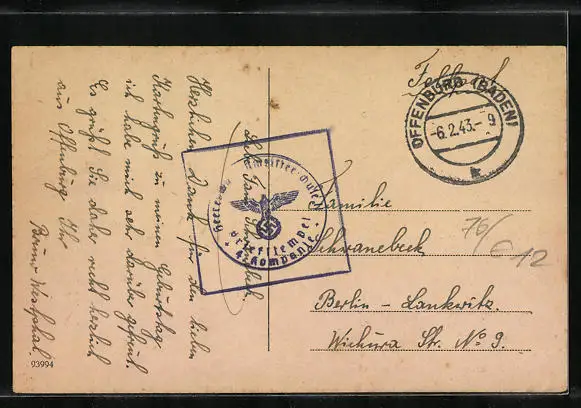 Feldpost
OFFENBURG (BADEN)
-6.2.43.- 9
k
Liebe Fam. Schwanebeck
Herzlichen Dank für den lieben
Kartengruß zu meinem Geburtstag
ich habe mich sehr darüber gefreut.
Es grüßt Sie daher recht herzlich
aus Offenburg Ihr
Bruno Westphal.
93994
Briefstempel
4. Kompanie
Familie
Schwanebeck
Berlin - Lankwitz.
Wichura Str. No 9.
76/
€12